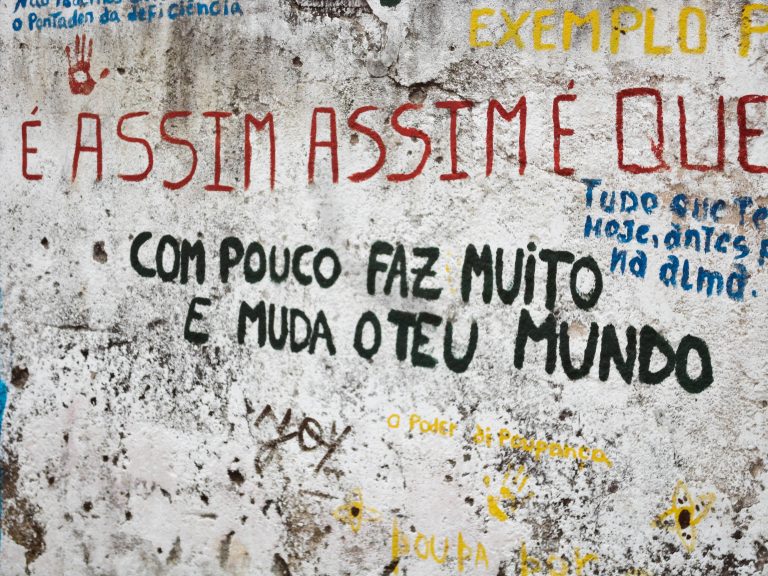 o Pontador da deficiência
EXEMPLO P
É ASSIM ASSIM É QUE
TUDO QUE Te
HOJE, ANTES
NA ALMA.
COM POUCO FAZ MUITO
E MUDA O TEU MUNDO
O PODER di Poupança
POUPA por